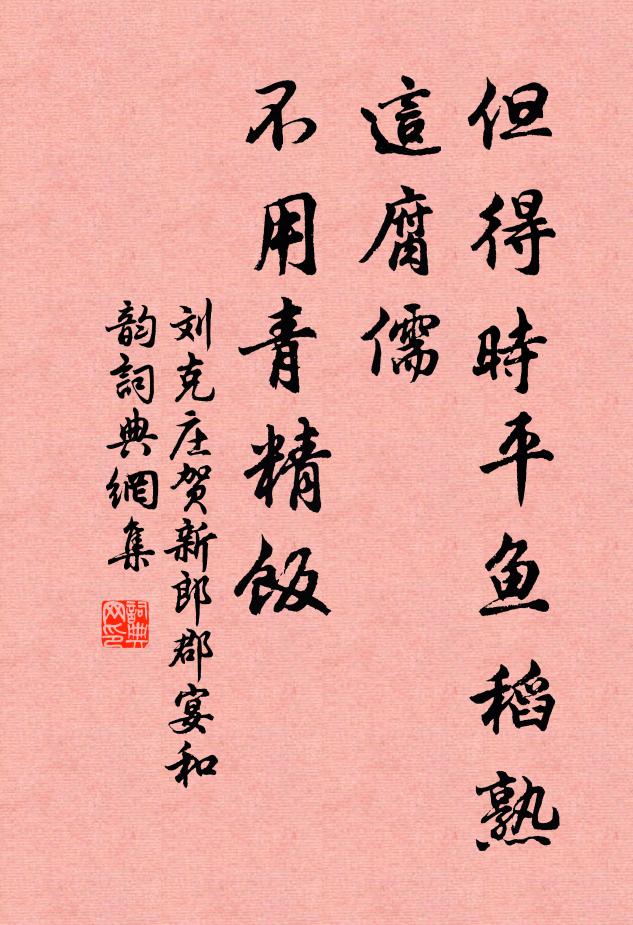 但得時平魚稻熟
這腐儒
不用青精飯
刘克庄贺新郎郡宴和
韵詞典網集
詞典
网印